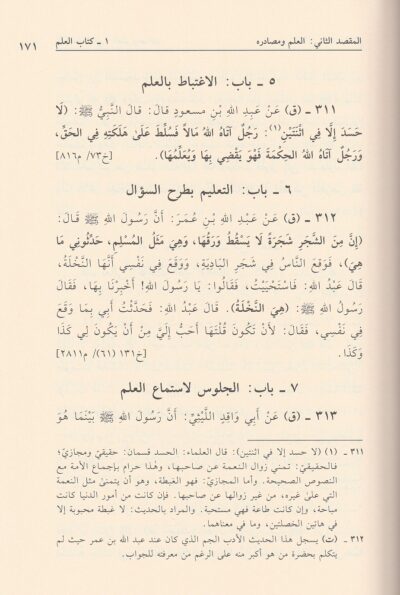 المقصد الثاني: العلم ومصادره ١ ـ كتاب العلم ١٧١
٥ ـ باب: الاغتباط بالعلم
٣١١ ـ (ق) عَنْ عَبدِ اللهِ بْنِ مسعودٍ قَالَ: قَالَ النَّبِيُّ ﷺ: (لَا
حَسَدَ إِلَّا فِي اثْنَتَيْنِ(١): رَجُلٌ آتَاهُ اللهُ مَالاً فَسُلِّطَ عَلَىٰ هَلَكَتِهِ فِي الحَقِّ،
وَرَجُلٌ آتَاهُ اللهُ الحِكْمَةَ فَهُوَ يَقْضِي بِهَا وَيُعَلِّمُهَا). [خ٧٣/ م٨١٦]
٦ ـ باب: التعليم بطرح السؤال
٣١٢ ـ (ق) عَنْ عَبدِ اللهِ بْنِ عُمَرَ: أَنَّ رَسُولَ اللهِ ﷺ قَالَ:
(إِنَّ مِنَ الشَّجَرِ شَجَرَةً لَا يَسْقُطُ وَرَقُهَا، وَهِيَ مَثَلُ المُسْلِمِ، حَدِّثُونِي مَا
هِيَ)، فَوَقَعَ النَّاسُ فِي شَجَرِ البَادِيَةِ، وَوَقَعَ فِي نَفْسِي أَنَّهَا النَّخْلَةُ،
قَالَ عَبْدُ اللهِ: فَاسْتَحْيَيْتُ، فَقَالُوا: يَا رَسُولَ اللهِ! أَخْبِرْنَا بِهَا، فَقَالَ
رَسُولُ اللهِ ﷺ: (هِيَ النَّخْلَةُ). قَالَ عَبْدُ اللهِ: فَحَدَّثْتُ أَبِي بِمَا وَقَعَ
فِي نَفْسِي، فَقَالَ: لأَنْ تَكُونَ قُلْتَهَا أَحَبُّ إِلَيَّ مِنْ أَنْ يَكُونَ لِي كَذَا
وَكَذَا. [خ١٣١ (٦١)/ م٢٨١١]
٧ ـ باب: الجلوس لاستماع العلم
٣١٣ ـ (ق) عَنْ أَبِي وَاقِدٍ اللَّيْثِيِّ: أَنَّ رَسُولَ اللهِ ﷺ بَيْنَمَا هُوَ
٣١١ ـ (١) (لا حسد إلا في اثنتين): قال العلماء: الحسد قسمان: حقيقي ومجازي؛
فالحقيقي: تمني زوال النعمة عن صاحبها، وهٰذا حرام بإجماع الأمة مع
النصوص الصحيحة. وأما المجازي: فهو الغبطة، وهو أن يتمنىٰ مثل النعمة
التي علىٰ غيره، من غير زوالها عن صاحبها. فإن كانت من أمور الدنيا كانت
مباحة، وإن كانت طاعة فهي مستحبة. والمراد بالحديث: لا غبطة محبوبة إلا
في هاتين الخصلتين، وما في معناهما.
٣١٢ ـ (ت) يسجل هذا الحديث الأدب الجم الذي كان عند عبد الله بن عمر حيث لم
يتكلم بحضرة من هو أكبر منه على الرغم من معرفته للجواب.